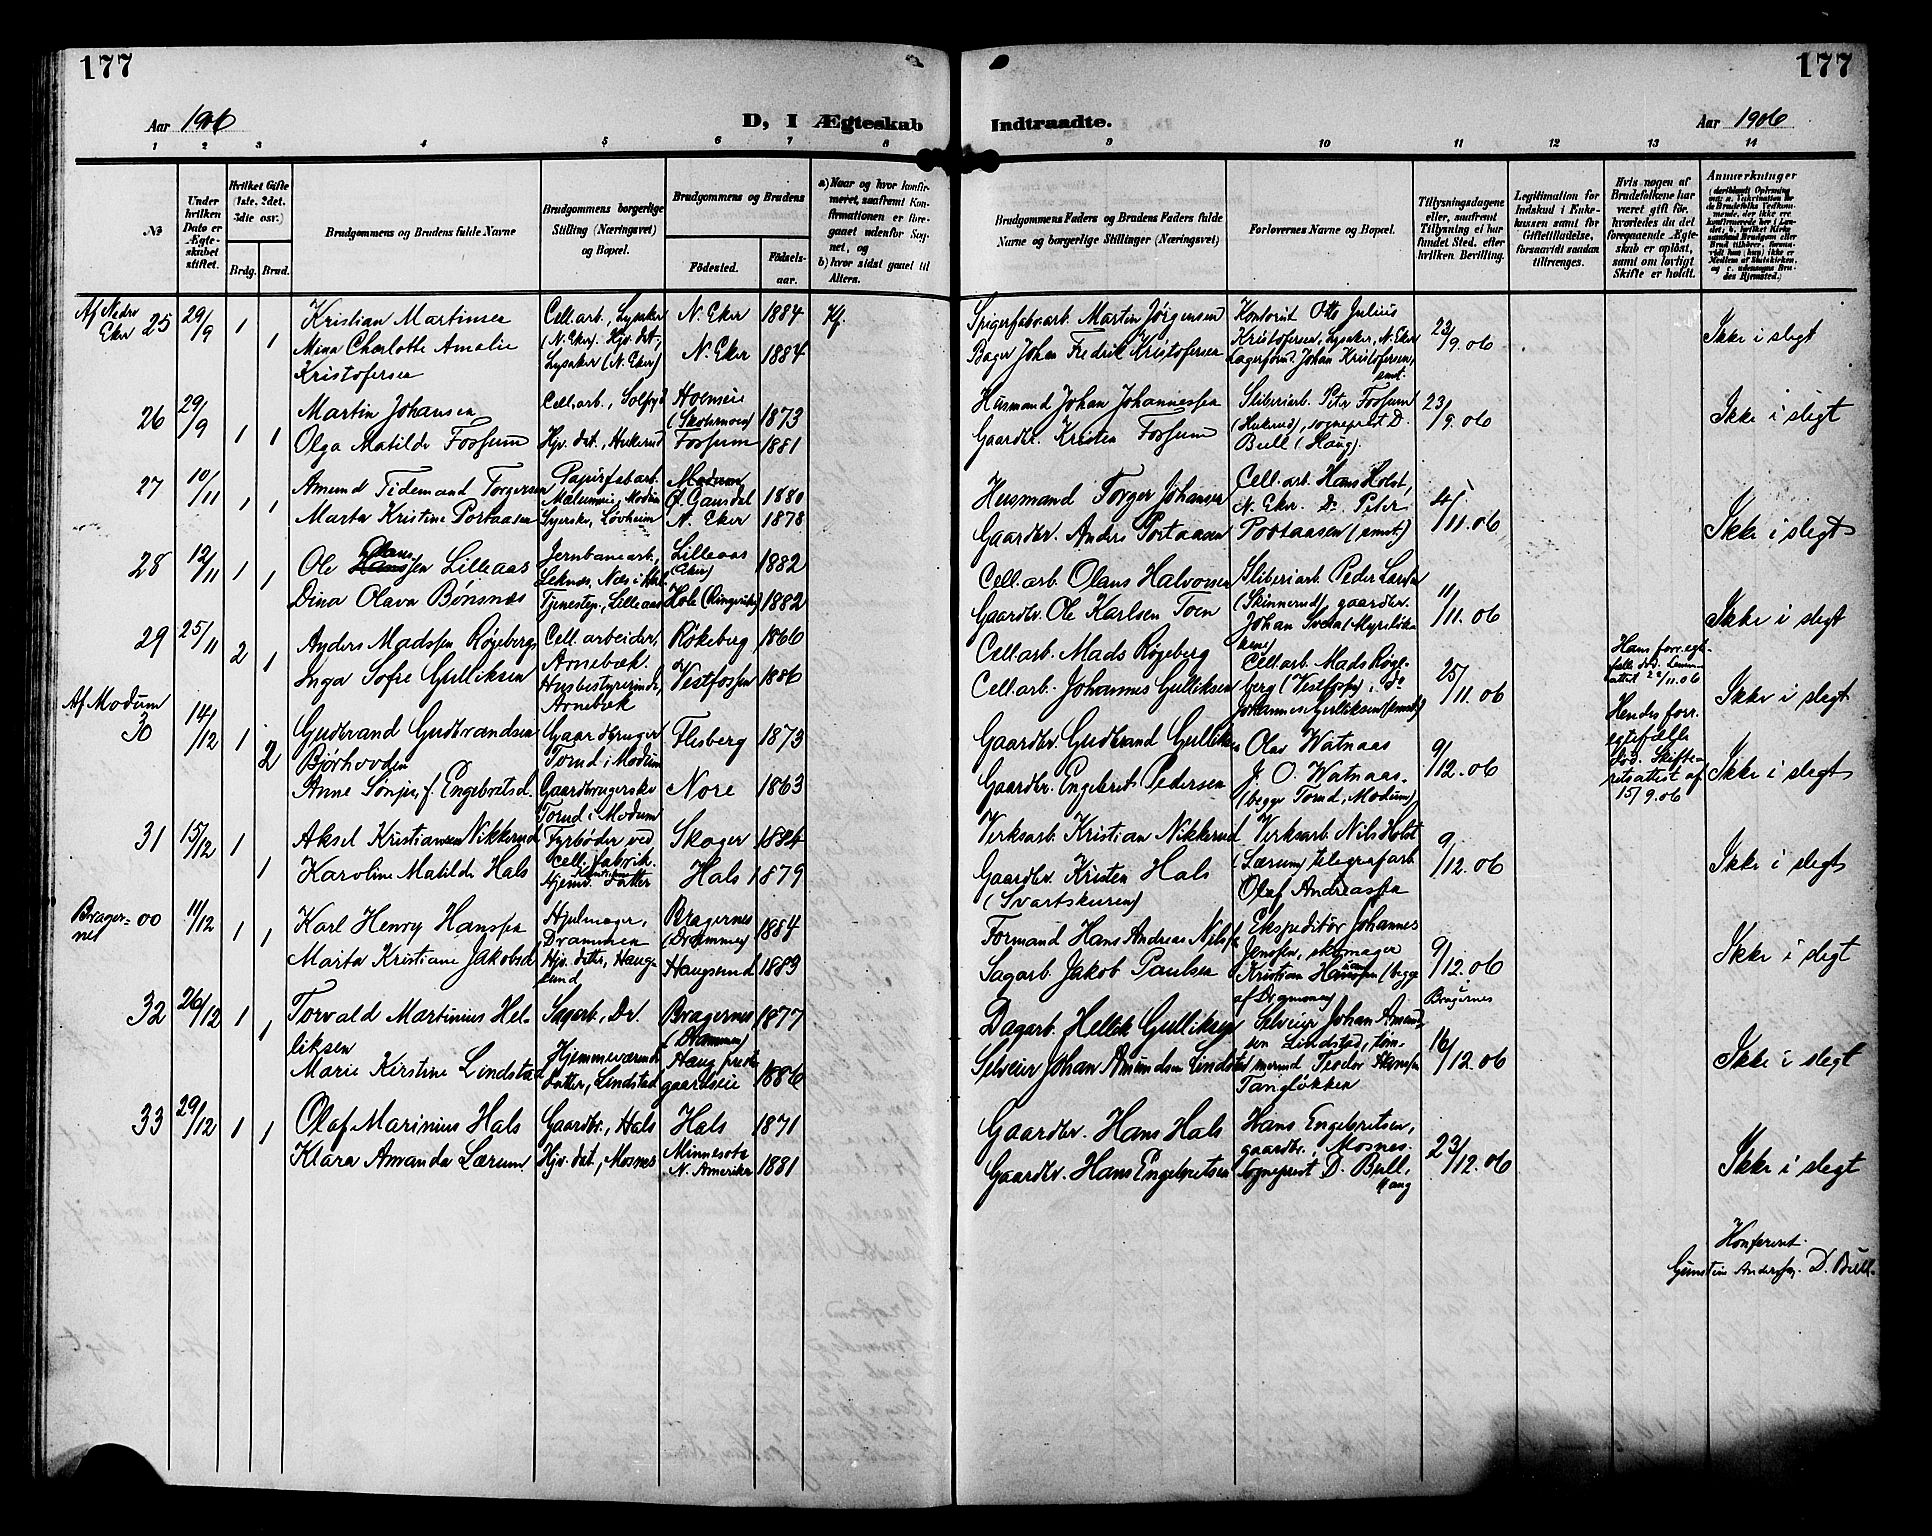 177
177
Aar 1906
D, I Ægteskab Indtraadte.
Aar 1906
1 2 3 4 5 6 7 8 9 10 11 12 13 14
No
Under hvilken Dato er Ægteskabet stiftet.
Hvilket Gifte (1ste, 2det, 3die osv.)
Brdg. Brud.
Brudgommens og Brudens fulde Navne
Brudgommens borgerlige Stilling (Næringsvei) og Bopæl.
Brudgommens og Brudens
Fødested.
Fødselsaar.
a) Naar og hvor konfirmeret, saafremt Konfirmationen er foregaaet udenfor Sognet, og
b) hvor sidst gaaet til Alters.
Brudgommens Faders og Brudens Faders fulde Navne og borgerlige Stillinger (Næringsvei)
Forlovernes Navne og Bopæl.
Tillysningsdagene eller, saafremt Tillysning ei har fundet Sted, efter hvilken Bevilling.
Legitimation for Indskud i Enkekassen samt for Giftetilladelse, forsaavidt saadan tiltrænges.
Hvis nogen af Brudefolkene har været gift før, hvorledes da det foregaaende Ægteskab er opløst, samt om lovligt Skifte er holdt.
Anmerkninger
Af Nedre Eker 25 29/9 1 1
Kristian Martinsen
Mina Charlotte Amalie
Kristofersen
Cell.arb., Lysaker
(N. Eker). Hjv. dat.,
Lysaker (N. Eker)
N. Eker 1884
N. Eker 1884
Spigerfabr.arb. Martin Jörgensen
Bager Johan Fredrik Kristofersen
Kontorist Otto Julius
Kristofersen, Lysaker, N. Eker
Lagerform. Johan Kristofersen,
smt.
23/9.06
Ikke i slegt
26 29/9 1 1
Martin Johansen
Olga Matilde Fossum
Cell.arb.,
Hjv. dat., Hukerud
1873
Fossum 1881
Husmand Johan Johannessen
Gaardbr. Kristen Fossum
Sliberiarb. Peter Fossum
(Hukerud), sogneprest D.
Bull (Haug).
23/9.06
Ikke i slegt
27 10/11 1 1
Amund Tidemand Torgersen
Marta Kristine Portaasen
Papirfab.arb.
Syerske, Løvheim
Modum
Ø. Gausdal 1880
N. Eker 1878
Husmand Torger Johansen
Gaardbr. Anders Portaasen
Cell.arb. Hans Holst,
N. Eker. Do Peter
Portaasen (smt.)
4/11.06
Ikke i slegt
28 12/11 1 1
Ole Olaussen Lilleaas
Dina Olava Bønsnæs
Jernbanearb.,
Tjenestep., Lilleaas
Lilleaas
(Eker) 1882
Hole (Ringerike) 1882
Cell.arb. Olaus Halvorsen
Gaardbr. Ole Karlsen Toen
Sliberiarb. Peder Larsen
(Skinnerud), gaardbr.
11/11.06
Ikke i slegt
29 25/11 2 1
Anders Madssen Røgeberg
Inga Sofie Gulliksen
Cell.arbeider,
Arnebæk.
Husbestyrerinde,
Arnebæk
Røkeberg 1866
Vestfossen 1886
Cell.arb. Mads Røgeberg
Cell.arb. Johannes Gulliksen
Cell.arb. Mads Røgeberg
(Vestfossen), do
Johannes Gulliksen (smst.)
25/11.06
Hans forr. egtefælle
død.
22/11.06
Ikke i slegt
Af Modum
30 14/12 1 2
Gudbrand Gudbrandsen
Bjørhovden
Anne Sønju, f. Engebretsd.
Gaardbruger
Torud i Modum
Gaardbrugerske
Torud i Modum
Flesberg 1873
Nore 1863
Gaardbr. Gudbrand Gulliksen
Gaardbr. Engebret Pedersen
Olav Watnaas
J. O. Watnaas.
(begge Torud, Modum)
9/12.06
Hendes forr.
egtefælle
død. Skifteretsattest af
15/9.06
Ikke i slegt
31 15/12 1 1
Aksel Kristiansen Nikkerud
Karoline Matilde Hals
Fyrbøder ved
cell.fabrik.
Hjemv. datter
Skoger 1884
Hals 1879
Verksarb. Kristian Nikkerud
Gaardbr. Kristen Hals
(Svartskuren)
Verksarb. Nils Holst
(Lærum), telegrafarb.
Olaf Andreassen
9/12.06
Ikke i slegt
Bragernes 00 11/12 1 1
Karl Henry Hanssen
Marta Kristiane Jakobsd.
Hjulmager,
Drammen
Hjv. datter, Haugsund
Bragernes
(Drammen) 1884
Haugsund 1883
Formand Hans Andreas Nilsen
Sagarb. Jakob Paulsen
Ekspeditør Johannes
Jenssen, skomager
Kristian Hanssen (begge
af Drammen)
9/12.06
Bragernes
Ikke i slegt
32 26/12 1 1
Torvald Martinius Helliksen
Marie Kirstine Lindstad
Sagarb., Dr.
Hjemmeværende
datter, Lindstad
Bragernes
(Drammen) 1877
Haug prestegaardseie 1886
Dagarb. Hellik Gulliksen
Selveier Johan Amundsen Lindstad
Selveier Johan Amundsen
Lindstad, tømmermand
Teodor Hanssen
Tangløkken
16/12.06
Ikke i slegt
33 29/12 1 1
Olaf Marinius Hals
Klara Amanda Lærum
Gaardbr., Hals
Hjv. dat., Mosnes
Hals 1871
Minnesota
N. Amerika 1881
Gaardbr. Hans Hals
Gaardbr. Hans Engebretsen
Hans Engebretsen,
gaardbr., Mosnes.
Sogneprest D. Bull,
Haug
23/12.06
Ikke i slegt
Konferert.
Gunstein Anderssen. D. Bull.